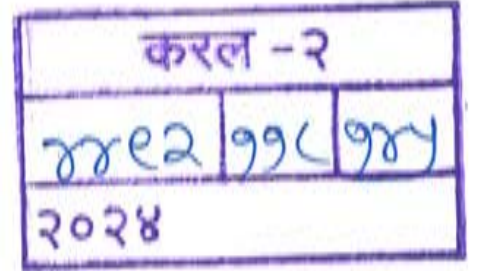 करल - २
४४९२ ११८ १४५
२०२४